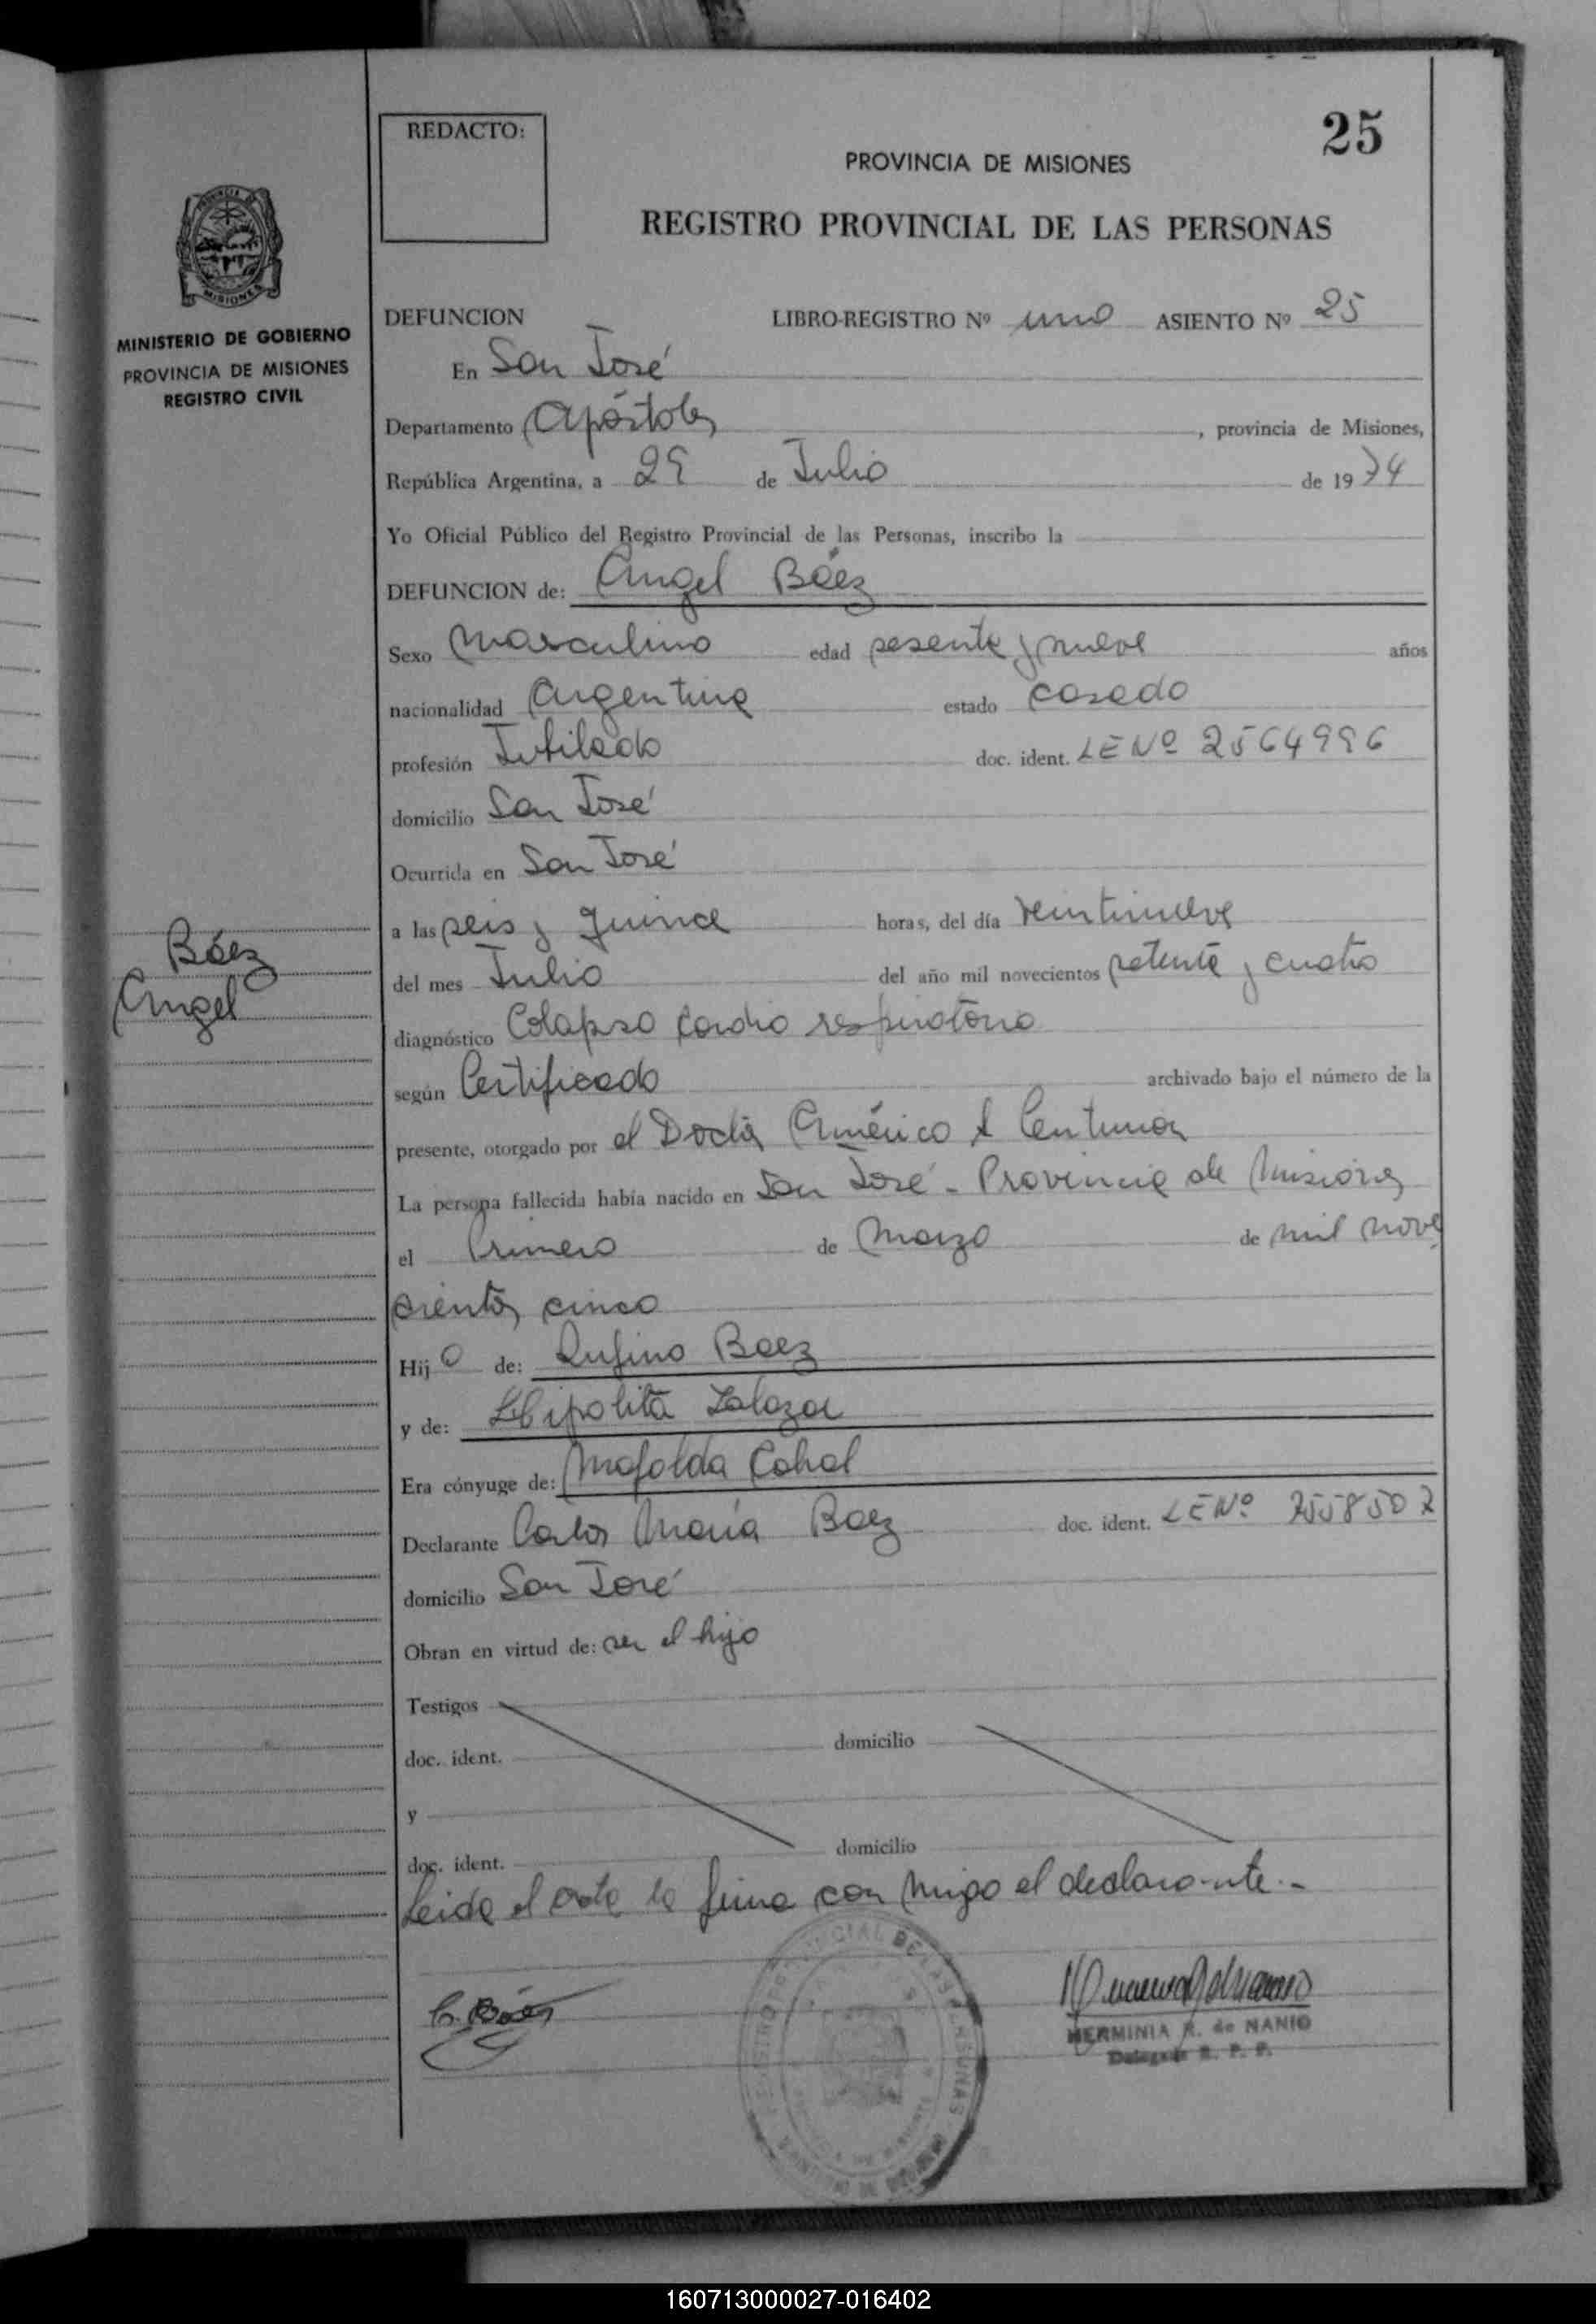 REDACTO:
25
PROVINCIA DE MISIONES
REGISTRO PROVINCIAL DE LAS PERSONAS
MISIONES
MINISTERIO DE GOBIERNO
PROVINCIA DE MISIONES
REGISTRO CIVIL
DEFUNCION LIBRO-REGISTRO Nº uno ASIENTO Nº 25
En San José
Departamento Apóstoles, provincia de Misiones,
República Argentina, a 29 de Julio de 1974
Yo Oficial Público del Registro Provincial de las Personas, inscribo la
DEFUNCION de: Angel Báez
Sexo Masculino edad sesenta y nueve años
nacionalidad Argentina estado casado
profesión Jubilado doc. ident. LE Nº 2564996
domicilio San José
Ocurrida en San José
a las seis y quince horas, del día veintinueve
Báez
Angel
del mes Julio del año mil novecientos setenta y cuatro
diagnóstico Colapso cardio respiratorio
según Certificado archivado bajo el número de la
presente, otorgado por el Doctor Américo A Centurion
La persona fallecida había nacido en San José - Provincia de Misiones
el Primero de Marzo de mil nove
cientos cinco
Hijo de: Rufino Baez
y de: Hipolita Zalazar
Era cónyuge de: Mafalda
Declarante Carlos María Baez doc. ident. LE Nº 7558507
domicilio San José
Obran en virtud de: ser el hijo
Testigos
doc. ident. domicilio
y
doc. ident. domicilio
Leida el acta la firma con migo el declarante.-
C. Báez
HERMINIA R. de NANIO
Delegada R. P. P.
160713000027-016402